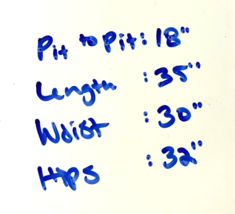 Pit to Pit: 18"
Length : 35"
Waist : 30"
Hips : 32"